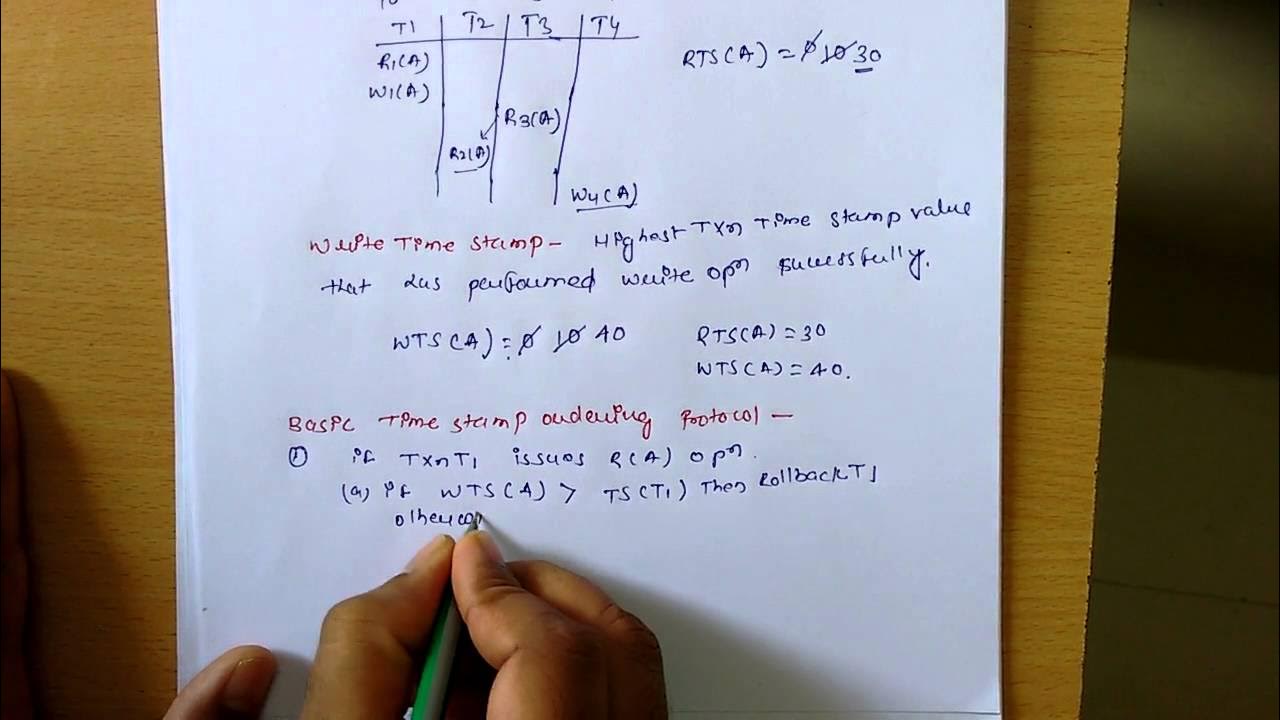 10
T1 T2 T3 T4
R1(A)
W1(A)
RTS(A) = 0 10 30
R3(A)
R2(A)
W4(A)
Write Time stamp - Highest Txn Time stamp value
that has performed write opn sucessfully.
WTS(A) = 0 10 40
RTS(A) = 30
WTS(A) = 40.
Basic Time stamp ordering Protocol -
① if Txn T1 issues R(A) opn.
(a) if WTS(A) > TS(T1) Then Rollback T1
otherw